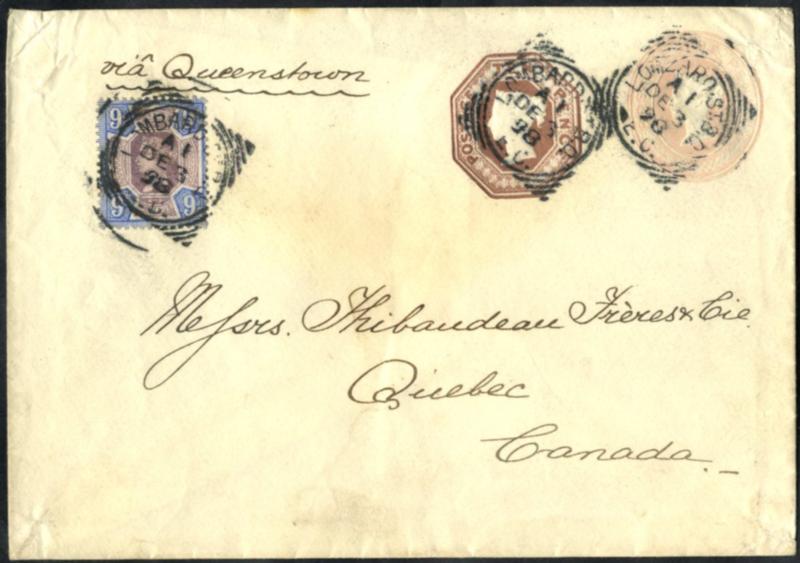 viâ Queenstown
9 9
LOMBARD
A 1
DE 3
98
C.
9 9
POSTAGE
LOMBARD ST. B.O.
A 1
DE 3
98
E.C.
LOMBARD ST. B.O.
A 1
DE 3
98
E.C.
Messrs. Thibaudeau Frères & Cie
Quebec
Canada